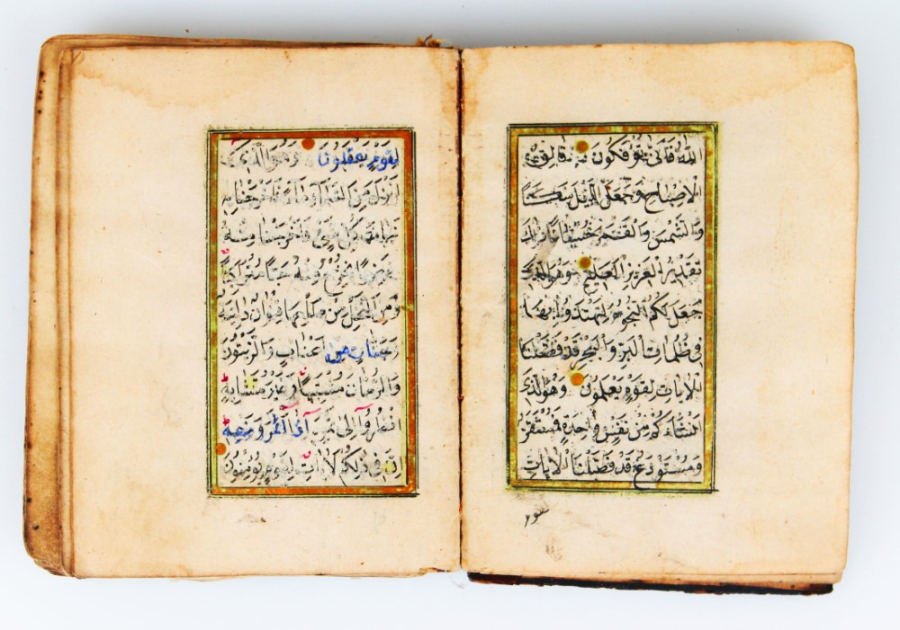 الله فانى تؤفكون فالق
الاصباح وجعل الليل سكنا
والشمس والقمر حسبانا ذلك
تقدير العزيز العليم وهو الذي
جعل لكم النجوم لتهتدوا بها
في ظلمات البر والبحر قد فصلنا
الايات لقوم يعلمون وهو الذي
انشاءكم من نفس واحدة فمستقر
ومستودع قد فصلنا الايات
لقوم
لقوم يعقلون وهو الذي
انزل من السماء ماء فاخرجنا به
نبات كل شيء فاخرجنا منه
خضرا نخرج منه حبا متراكبا
ومن النخل من طلعها قنوان دانية
وجنات من اعناب والزيتون
والرمان مشتبها وغير متشابه
انظروا الى ثمره اذا اثمر وينعه
ان في ذلكم لايات لقوم يؤمنون